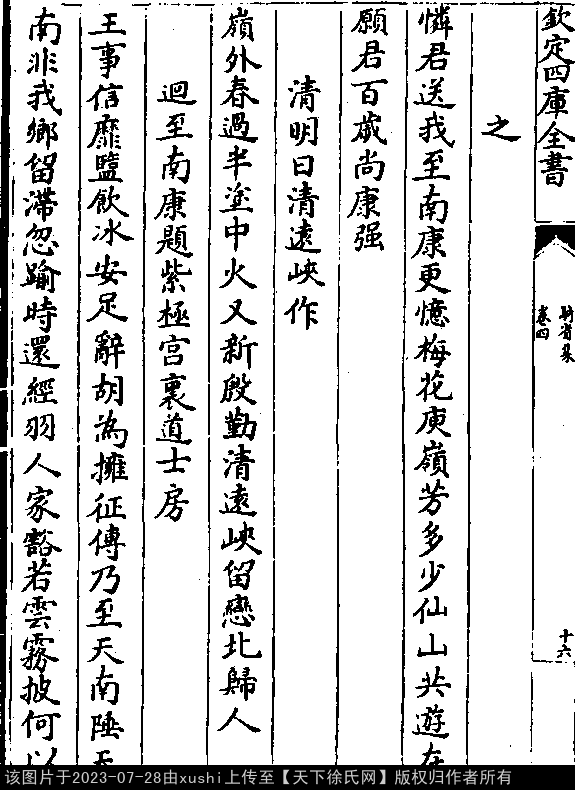 欽定四庫全書
騎省集
卷四
十六
之
憐君送我至南康更憶梅花庾嶺芳多少仙山共遊在
願君百歲尚康强
清明日清遠峽作
嶺外春過半塗中火又新殷勤清遠峽留戀北歸人
迴至南康題紫極宮裏道士房
王事信靡盬飲冰安足辭胡為擁征傳乃至天南陲天
南非我鄉留滯忽踰時還經羽人家豁若雲霧披何以
该图片于2023-07-28由xushi上传至【天下徐氏网】版权归作者所有